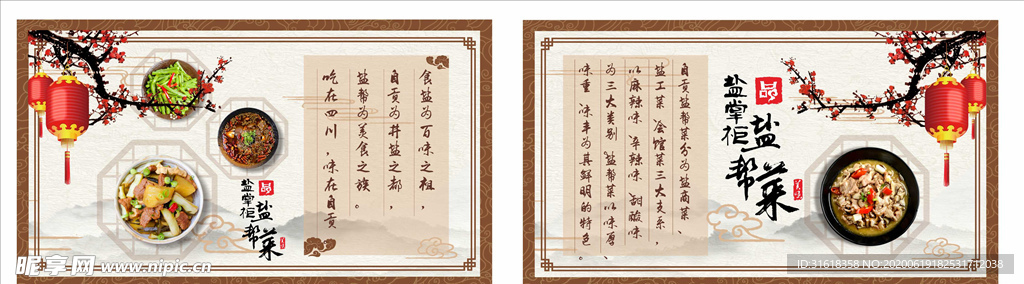 食盐为百味之祖，
自贡为井盐之都，
盐帮为美食之族。
吃在四川，味在自贡
品
盐掌柜
盐帮菜
自贡盐帮菜分为盐商菜、
盐工菜、会馆菜三大支系，
以麻辣味、辛辣味、甜酸味
为三大类别，盐帮菜以味厚、
味重、味丰为其鲜明的特色。
品
盐掌柜
盐帮菜
昵享网 www.nipic.cn
ID:31618358 NO:20200619182531712038